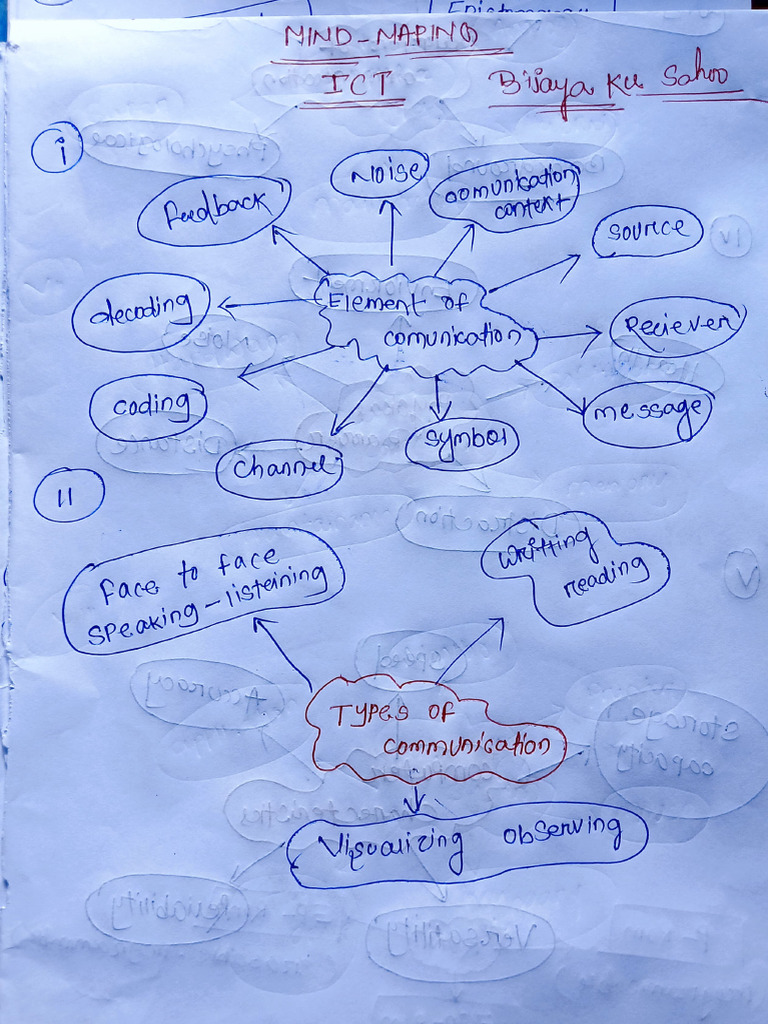 MIND-MAPING
ICT
Bijaya Ku Sahoo
i
Noise
comunication
context
Feedback
source
decoding
Element of
comunication
Reciever
coding
message
symbol
channel
II
Face to face
speaking-listeining
writting
reading
Types of
communication
Visualizing observing